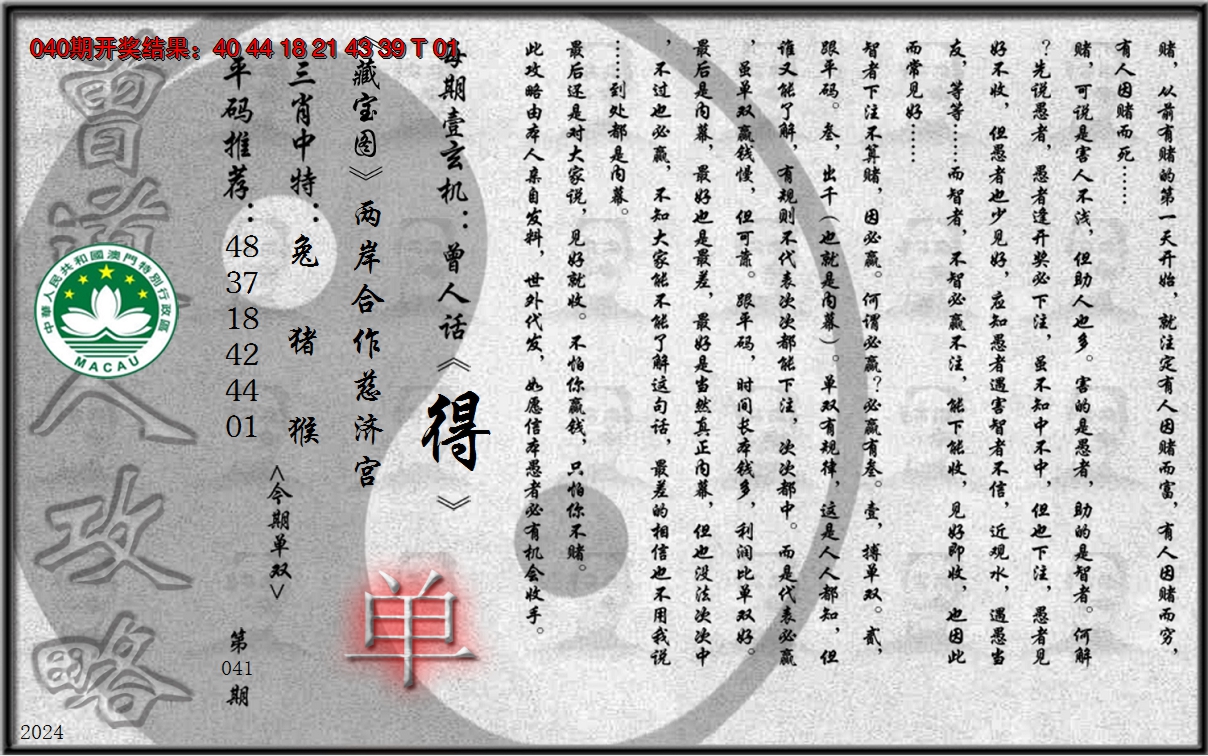 040期开奖结果：40 44 18 21 43 39 T 01
赌，从前有赌的第一天开始，就注定有人因赌而富，有人因赌而穷，
有人因赌而死……
赌，可说是害人不浅，但助人也多。害的是愚者，助的是智者。何解
？先说愚者，愚者逢开奖必下注，虽不知中不中，但也下注，愚者见
好不收，但愚者也少见好，应知愚者遇害智者不信，近观水，遇愚当
友，等等……而智者，不智必赢不注，能下能收，见好即收，也因此
而常见好……
智者下注不算赌，因必赢。何谓必赢？必赢有叁。壹，搏单双。贰，
跟平码。叁，出千（也就是内幕）。单双有规律，这是人人都知，但
谁又能了解，有规则不代表次次都能下注，次次都中。而是代表必赢
，虽单双赢钱慢，但可靠。跟平码，时间长本钱多，利润比单双好。
最后是内幕，最好也是最差，最好是当然真正内幕，但也没法次次中
，不过也必赢，不知大家能不能了解这句话，最差的相信也不用我说
……到处都是内幕。
最后还是对大家说，见好就收。不怕你赢钱，只怕你不赌。
此攻略由本人亲自发料，世外代发，如愿信本愚者必有机会收手。
每期壹玄机：曾人话《得》
《藏宝图》两岸合作慈济宫
单
三肖中特：兔 猪 猴
<今期单双>
平码推荐：
48
37
18
42
44
01
第
041
期
曾道人攻略
中華人民共和國澳門特別行政區
MACAU
2024